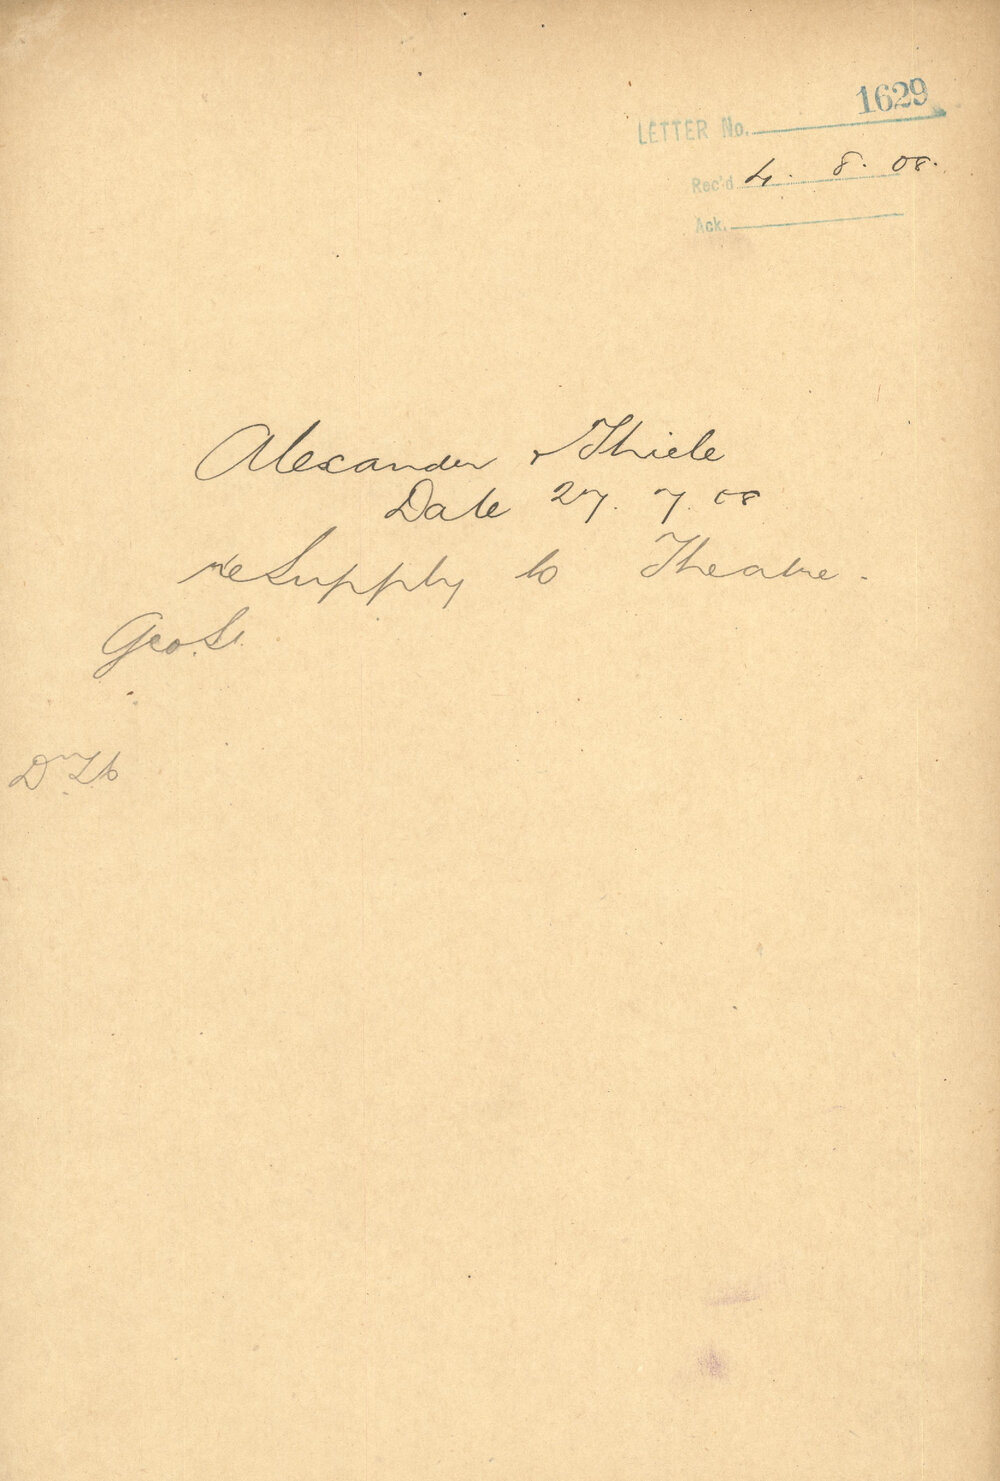 LETTER No. 1629
Rec'd 4. 8. 08.
Ack.
Alexander & Thiele
Date 27. 7. 08
re Supply to Theatre.
Geo. St.